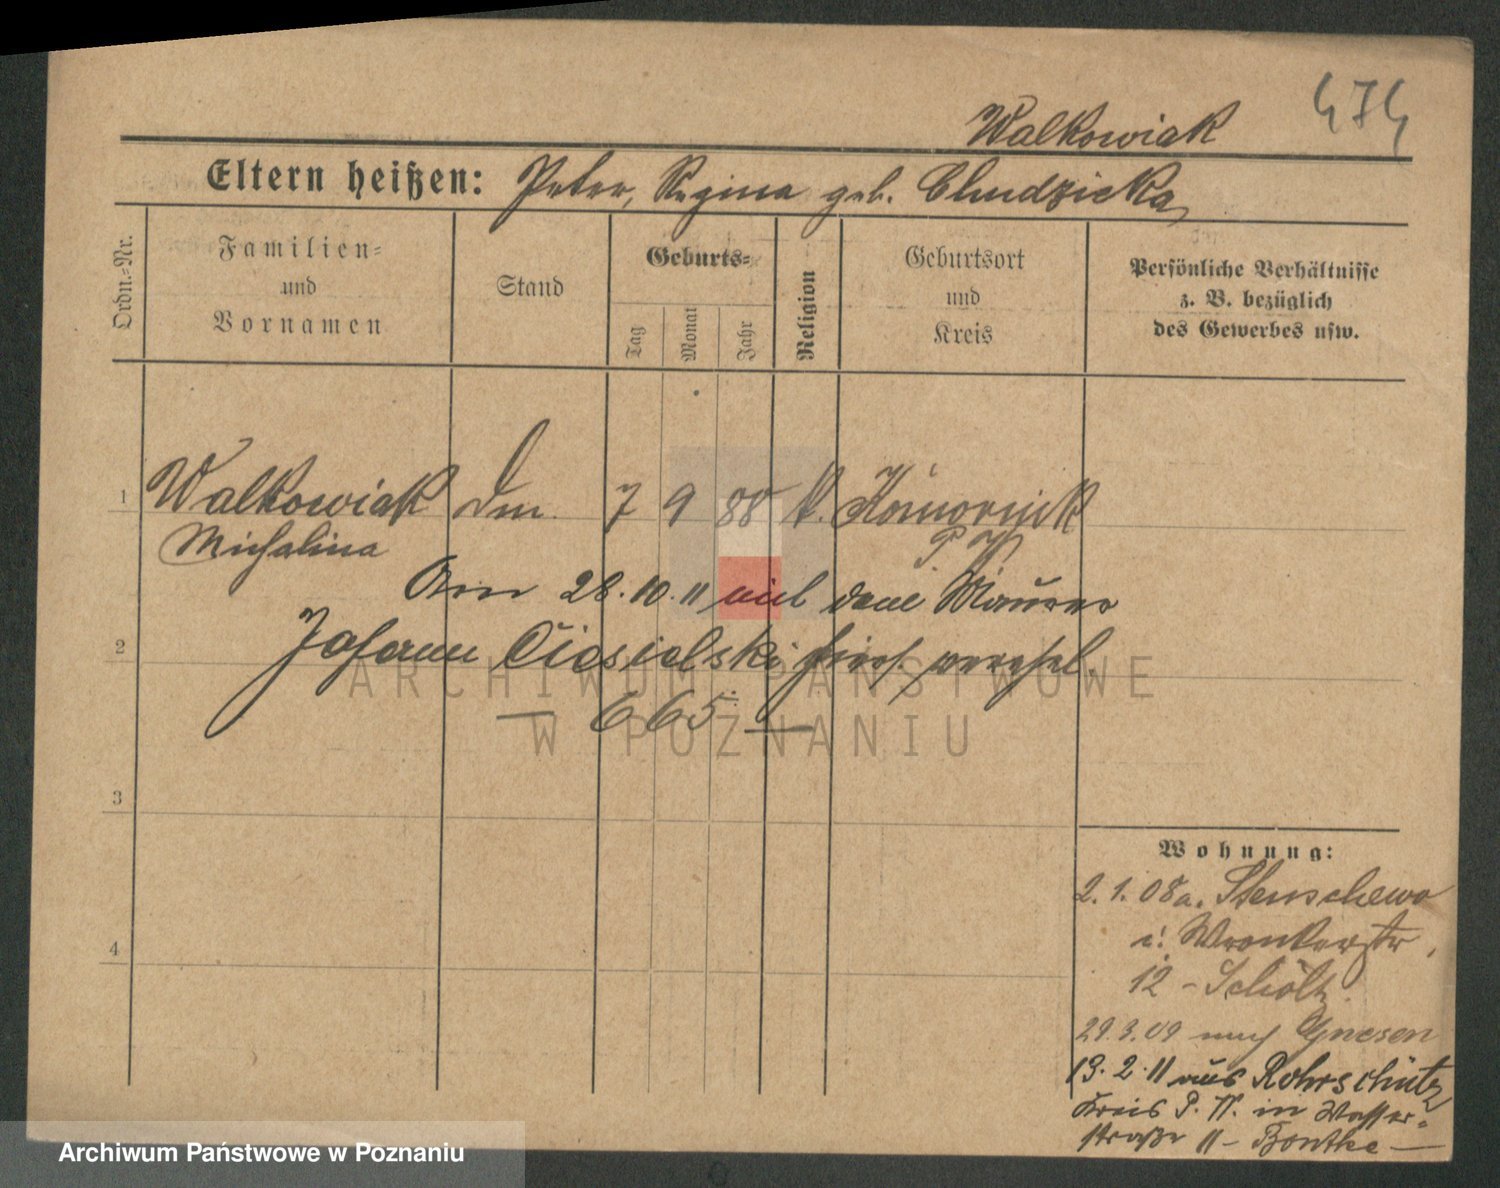 474
Walkowiak
Eltern heißen: Peter, Regina geb. Chudzicka
Ordn.=Nr.
Familien=
und
Vornamen
Stand
Geburts=
Tag
Monat
Jahr
Religion
Geburtsort
und
Kreis
Persönliche Verhältnisse
z. B. bezüglich
des Gewerbes usw.
1 Walkowiak 7 9 88 k. Komornik
Michalina P. W.
Am 28.10.11 mit dem Maurer
2 Johann Ciesielski hies. verehel.
— 665 —
3
4
Wohnung:
2.1.08 a. Stenschewo
i. Wronkerstr.
12 - Scholz.
29.3.09 nach Gnesen
13.2.11 aus Rohrschütz
Kreis P. W. in Wasser-
straße 11 - Bontke -
ARCHIWUM PAŃSTWOWE
W POZNANIU
Archiwum Państwowe w Poznaniu